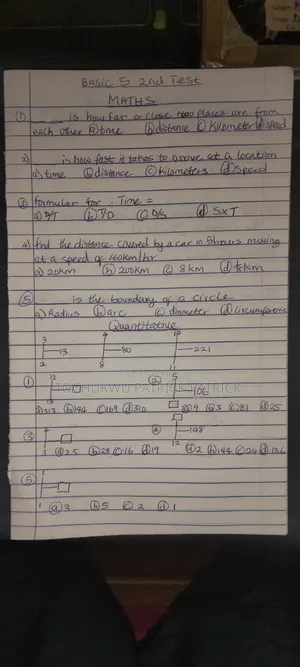 Basic 5 2nd Test
MATHS
(1) ______ is how far or close two places are from
each other (a) time (b) distance (c) Kilometer (d) Speed
2) ______ is how fast it takes to arrive at a location
a) time (b) distance (c) kilometers (d) Speed
(3) formular for Time =
(a) D/T (b) T/D (c) D/S (d) SXT
4) find the distance covered by a car in 5hours moving
at a speed of 40km/hr
a) 20km (b) 200km (c) 8km (d) 1/8km
(5) ______ is the boundary of a circle
a) Radius (b) arc (c) diameter (d) circumference
Quantitative
3 4 10
13 80 221
2 8 11
(1) 12 (2) 5
106
13
(a) 313 (b) 144 (c) 169 (d) 310 (a) 9 (b) 3 (c) 81 (d) 25
(3) 4 (4)
148
3 12
(a) 25 (b) 28 (c) 16 (d) 19 (a) 2 (b) 144 (c) 24 (d) 136
(5) 1
1 (a) 3 (b) 5 (c) 2 (d) 1
TOCHUKWU PATRICK PATRICK